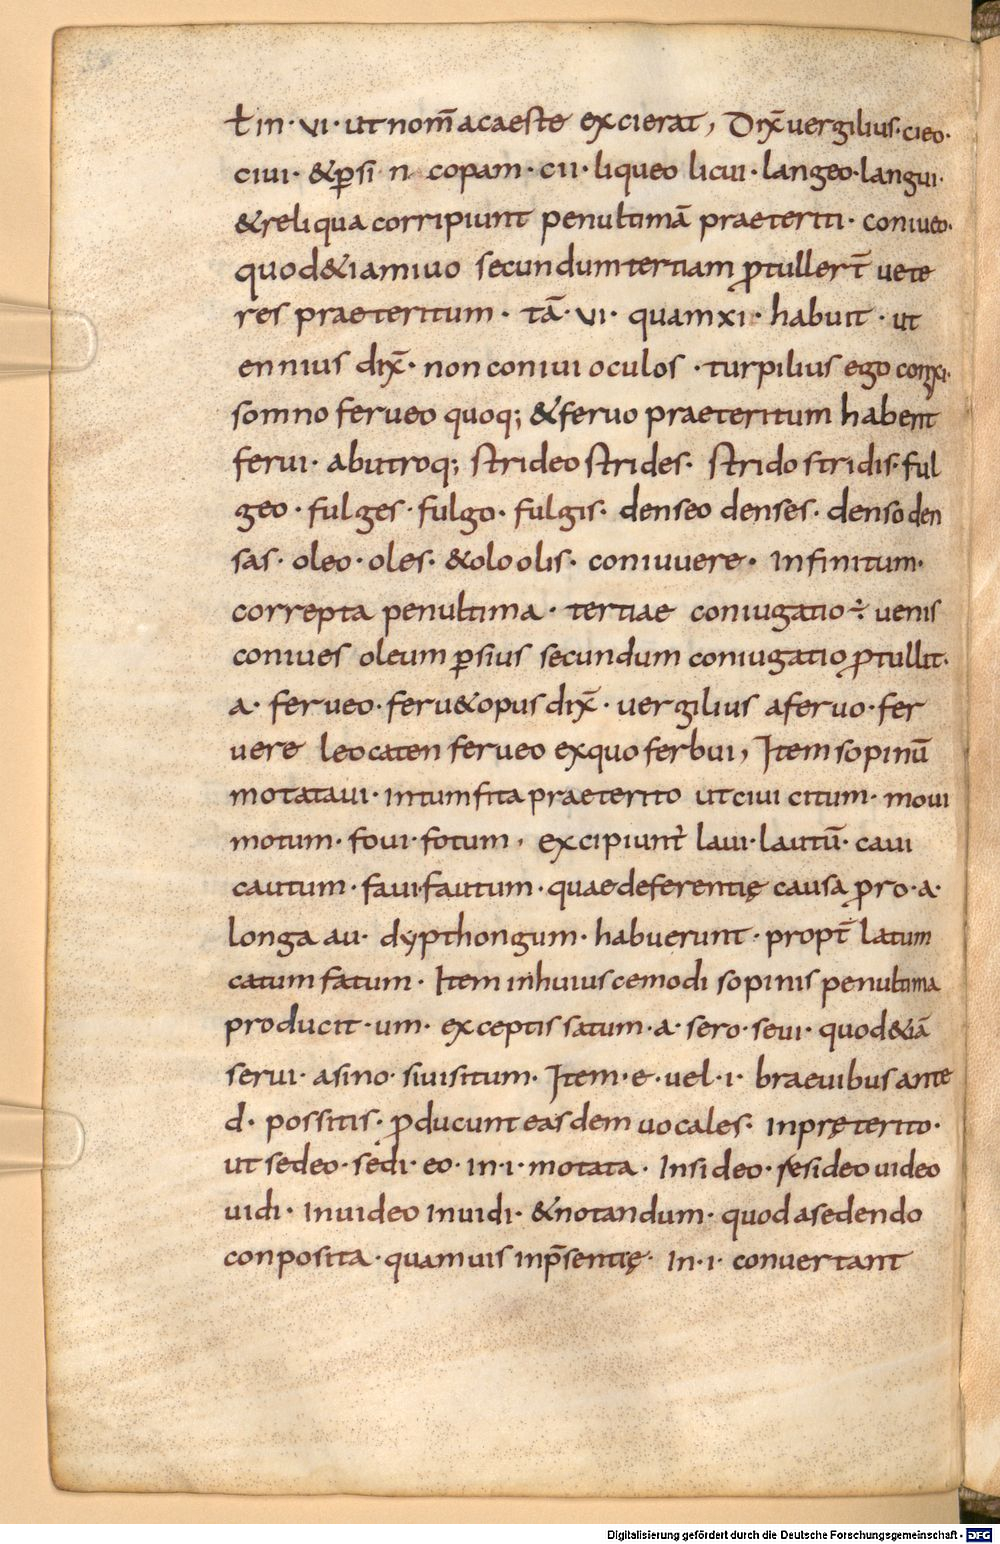 ƚ in · vi · ut nom̄ acaeste excierat, Dix̄ vergilius · cieo ·
civi · & ꝑsi n copam · cii · liqueo licui · langeo · langui ·
& reliqua corripiunt penultimā praeteriti · coniveo ·
quod & iam ivo secundum tertiam ꝓtullert̄ vete
res praeteritum · tā · vi · quam xi · habuit · ut
ennius dix̄ · non conivi oculos · turpilius ego conixi ·
somno ferveo quoq; & fervo praeteritum habent
fervi · ab utroq; strideo strides · strido stridis · ful
geo · fulges · fulgo · fulgis · denseo denses · denso den
sas · oleo · oles · & olo olis · conivvere · infinitum ·
correpta penultima · tertiae coniugatio ÷ venis
conives oleum ꝑsius secundum coniugatio ꝓtullit ·
a · ferveo · ferv& opus dix̄ · vergilius a fervo · fer
vere leo caten ferveo ex quo ferbui, Item sopinū
motata vi · in tum fit a praeterito ut civi citum · movi
motum · fovi · fotum · excipiunt᷑ lavi · lautū · cavi
cautum · favi · fautum · quae deferentię causa ꝓro · a ·
longa au · dypthongum · habuerunt · propt̄ latum
catum fatum · Item in huiuscemodi sopinis penultima
producit · um · exceptis satum · a · sero · sevi · quod & iā
servi · a sino · sivi situm · Item · e · vel · i · braevibus ante
d · possitis · ꝓducunt easdem vocales · in pręterito ·
ut sedeo · sedi · eo · in · i · motata · Insideo · resideo video
vidi · Invideo Invidi · & notandum · quod a sedendo
conposita · quamvis in p̄sentię · In · i · convertant
Digitalisierung gefördert durch die Deutsche Forschungsgemeinschaft - DFG